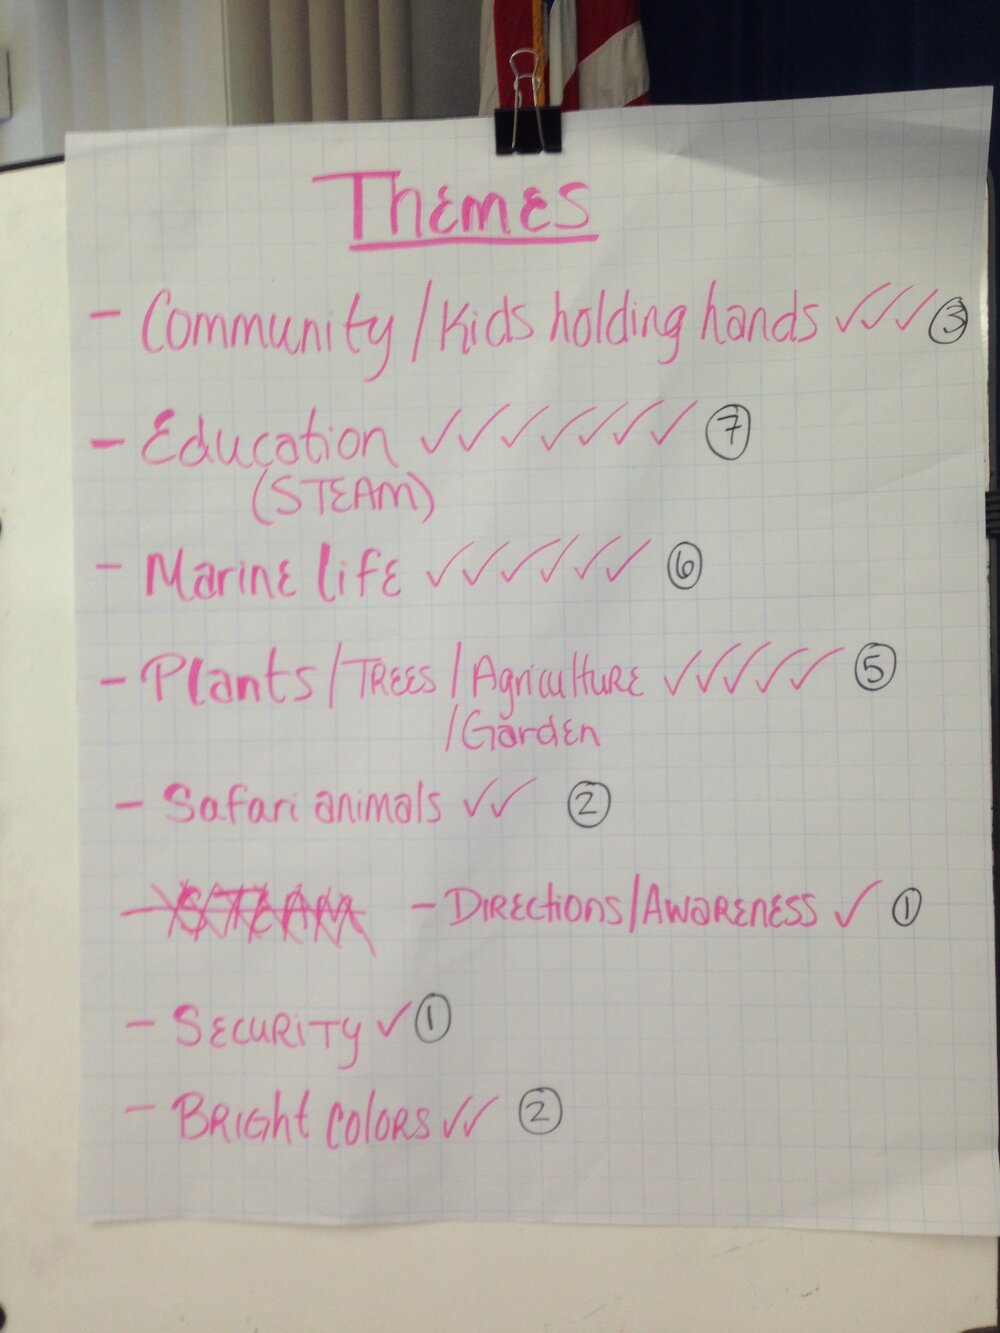 Themes
- Community/Kids holding hands ✓✓✓ ③
- Education ✓✓✓✓✓✓✓ ⑦
(STEAM)
- Marine life ✓✓✓✓✓✓ ⑥
- Plants/Trees/Agriculture ✓✓✓✓✓ ⑤
/Garden
- Safari animals ✓✓ ②
- STEAM - Directions/Awareness ✓ ①
- Security ✓ ①
- Bright colors ✓✓ ②